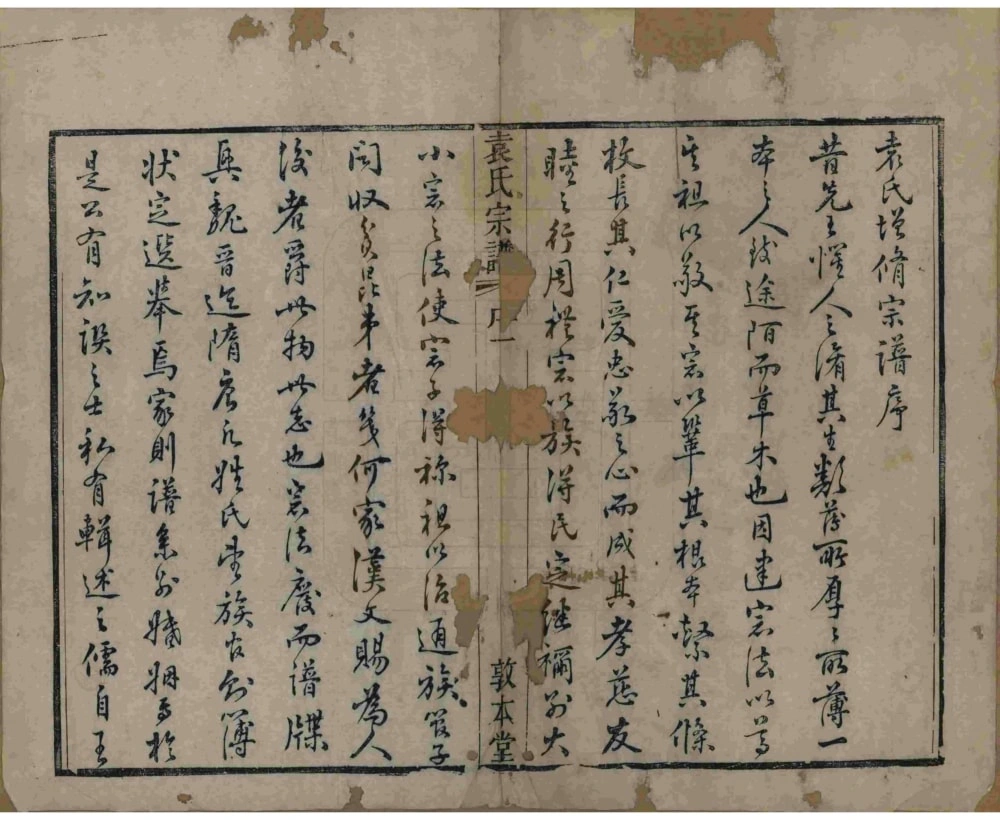 袁氏增脩宗譜序
昔先王懼人之淆其生類薄所厚厚所薄一
本之人致途陌而草木也因建宗法以尊
其祖以敬其宗以鞏其根本繁其條
枚長其仁愛忠敬之心而成其孝慈友
睦之行周禮宗以族得民定继禰别大
小宗之法使宗子得祢祖以治通族管子
问收貧昆弟者幾何家漢文賜為人
後者爵此物此志也宗法廢而譜牒
興魏晋迄隋唐凡姓氏望族皆創簿
状定選举焉家則譜系别婚姻焉於
是公有知譔之士私有輯述之儒自王
袁氏宗譜
序一
敦本堂